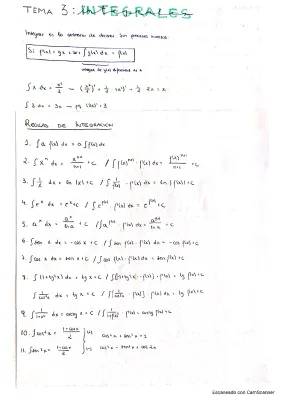 TEMA 3: INTEGRALES
Integrar es lo contrario de derivar. Son procesos inversos
Si f'(x) = g(x) → ∫g(x) dx = f(x)
∫x dx = x²/2 → (x²/2)' = 1/2 (x²)' = 1/2 · 2x = x
∫3 dx = 3x → (3x)' = 3
REGLAS DE INTEGRACIÓN
1. ∫a f(x) dx = a ∫f(x) dx
2. ∫xⁿ dx = xⁿ⁺¹/n+1 + C / ∫f(x)ⁿ · f'(x) dx = f(x)ⁿ⁺¹/n+1 + C
3. ∫1/x dx = ln |x| + C / ∫1/f(x) · f'(x) dx = ln |f(x)| + C
4. ∫eˣ dx = eˣ + C / ∫e^f(x) · f'(x) dx = e^f(x) + C
5. ∫aˣ dx = aˣ/ln a + C / ∫a^f(x) · f'(x) dx = a^f(x)/ln a + C
6. ∫sen x dx = -cos x + C / ∫sen f(x) · f'(x) dx = -cos f(x) + C
7. ∫cos x dx = sen x + C / ∫cos f(x) · f'(x) dx = sen f(x) + C
8. ∫(1+tg²x) dx = tg x + C / ∫(1+tg²x · f(x)) · f'(x) = tg f(x) + C
∫1/cos²x dx = tg x + C / ∫1/cos²f(x) · f'(x) dx = tg f(x) + C
9. ∫1/1+x² dx = arctg x + C / ∫1/1+f(x)² · f'(x) = arctg f(x) + C
10. ∫cos²x = 1+cos 2x/2 cos²x + sen²x = 1
11. ∫sen²x = 1-cos 2x/2 cos²x - sen²x = cos 2x
Escaneado con CamScanner